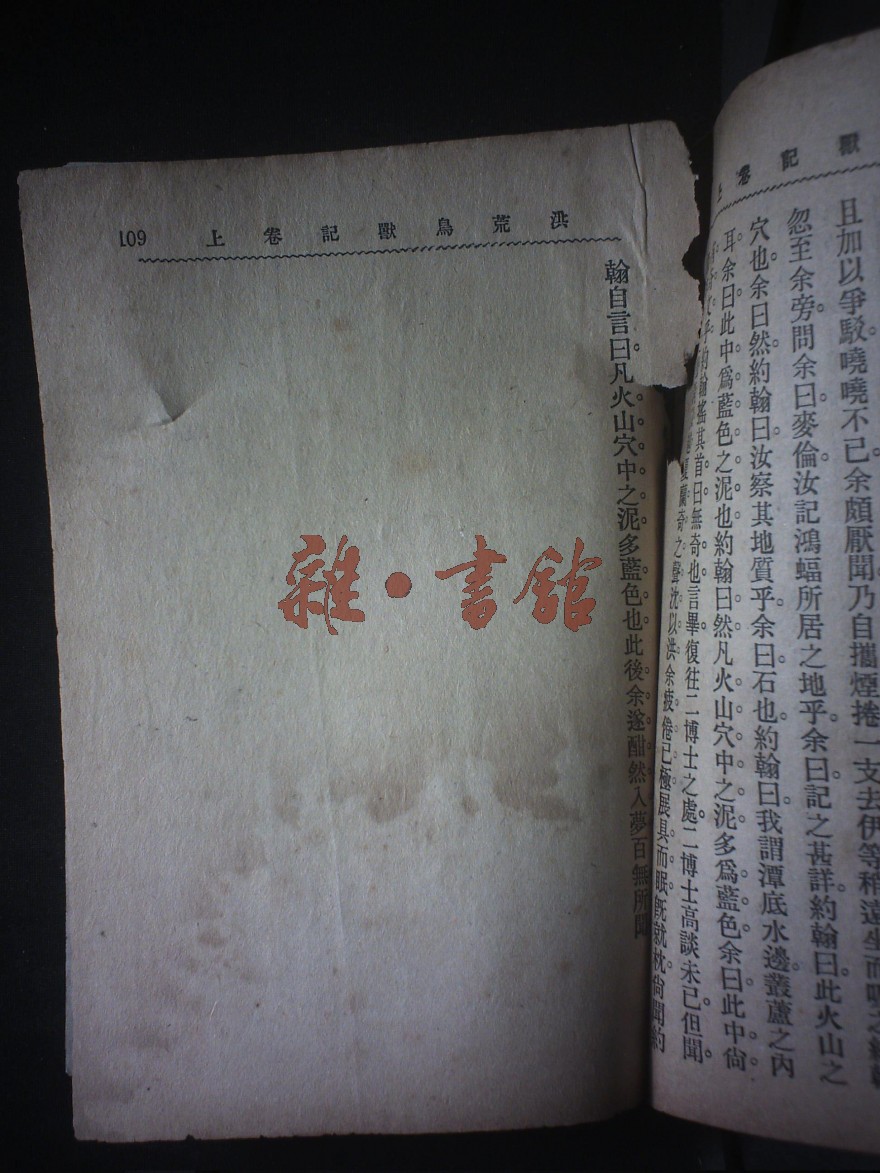 獸記卷上
且加以爭駁嘵嘵不已余頗厭聞乃自攜煙捲一支去伊等稍遠坐而吸之約翰
忽至余旁問余曰麥倫汝記鴻蝠所居之地乎余曰記之甚詳約翰曰此火山之
穴也余曰然約翰曰汝察其地質乎余曰石也約翰曰我謂潭底水邊叢蘆之內
耳余曰此中爲藍色之泥也約翰曰然凡火山穴中之泥多爲藍色余曰此中尙
乎約翰搖其首曰無奇也言畢復往二博士之處二博士高談未已但聞
奇之聲沈以洪余疲倦已極展具而眠旣就枕尙聞約
洪荒鳥獸記卷上 109
翰自言曰凡火山穴中之泥多藍色也此後余遂酣然入夢百無所聞
雜·書館